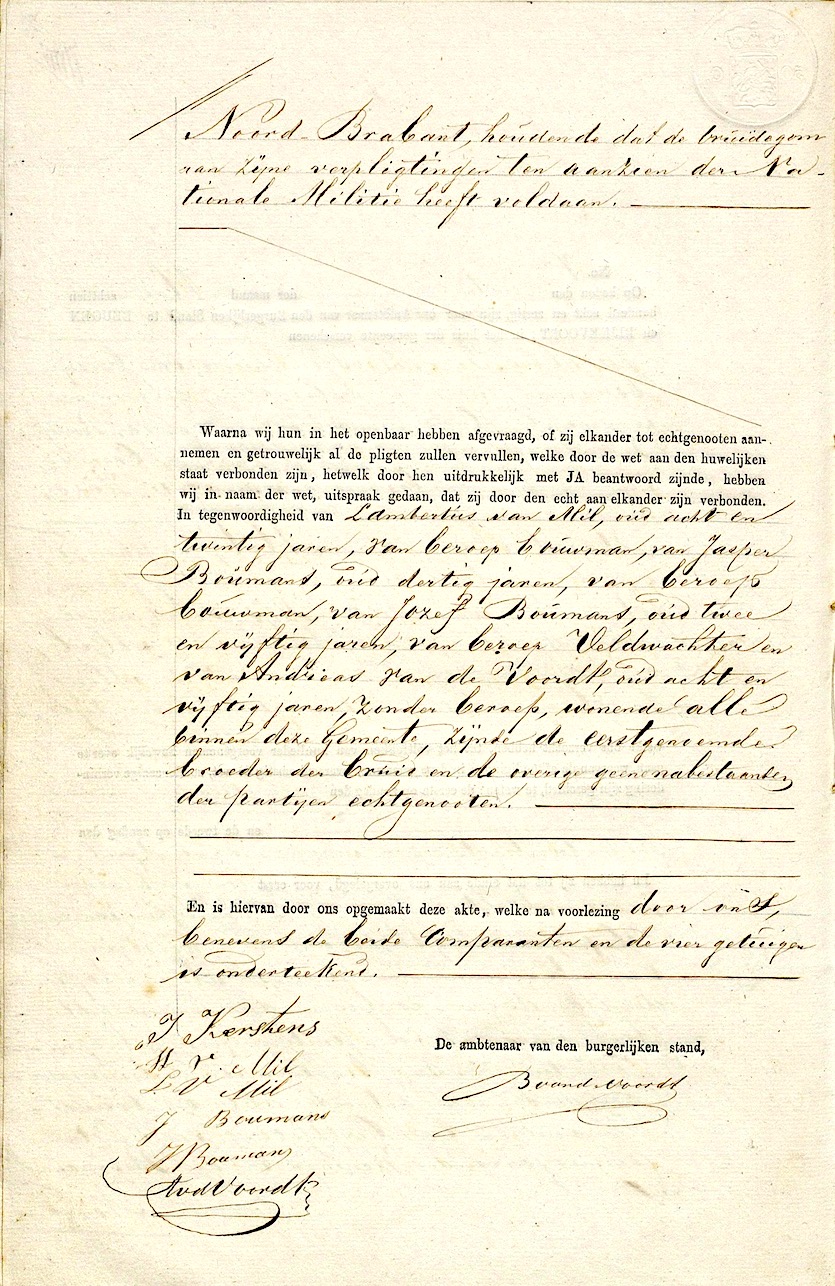 Noord-Brabant, houdende dat de bruidegom
aan zijne verpligtingen ten aanzien der Na-
tionale Militie heeft voldaan.
Waarna wij hun in het openbaar hebben afgevraagd, of zij elkander tot echtgenooten aan-
nemen en getrouwelijk al de pligten zullen vervullen, welke door de wet aan den huwelijken
staat verbonden zijn, hetwelk door hen uitdrukkelijk met JA beantwoord zijnde, hebben
wij in naam der wet, uitspraak gedaan, dat zij door den echt aan elkander zijn verbonden.
In tegenwoordigheid van Lambertus van Mil, oud acht en
twintig jaren, van beroep bouwman, van Jasper
Boumans, oud dertig jaren, van beroep
bouwman, van Jozef Boumans, oud twee
en vijftig jaren, van beroep Veldwachter en
van Andreas van de Voordt, oud acht en
vijftig jaren, zonder beroep, wonende alle
binnen deze Gemeente, zijnde de eerstgenoemde
broeder der bruid en de overige geene nabestaanden
der partijen echtgenooten.
En is hiervan door ons opgemaakt deze akte, welke na voorlezing door ons,
benevens de beide Comparanten en de vier getuigen
is onderteekend.
J Kerstens
H v. Mil
L V Mil
J Boumans
J Boumans
AvdVoordt
De ambtenaar van den burgerlijken stand,